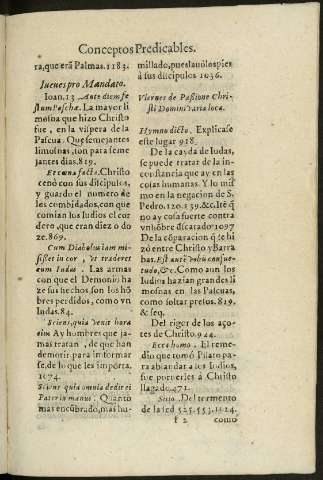 Conceptos Predicables.
ra, que erã Palmas. 1183.
Iueues pro Mandato.
Ioan. 13. Ante diem fe
stum Paschæ. La mayor li
mosna que hizo Christo
fue, en la vispera de la
Pascua. Que semejantes
limosnas, son para seme
jantes dias. 819.
Et cœna facta. Christo
cenò con sus discipulos,
y guardo el numero de
los combidados, con que
comian los Iudios el cor
dero, que eran diez o do
ze. 869.
Cum Diabolus iam mi-
sisset in cor, vt traderet
eum Iudas. Las armas
con que el Demonio ha
ze sus hechos son los hõ
bres perdidos, como vn
Iudas. 84.
Sciens, quia venit hora
eius Ay hombres que ja-
mas tratan, de que han
de morir para informar
se, de lo que les importa.
1074.
Sciens quia omnia dedit ei
Pater in manus. Quanto
mas encũbrado, mas hu-
millado, pues lauò los pies
à sus discipulos 1036.
Viernes de Passione Chri-
sti Domini varia loca.
Hymno dicto. Explicase
este lugar 918.
De la cayda de Iudas,
se puede tratar de la in-
constancia que ay en las
cosas humanas. Y lo mis
mo en la negacion de S.
Pedro. 120. 139. &c. Itẽ q̃
no ay cosa fuerte contra
vn hõbre discarado 1097
De la cõparacion q̃ se hi
zò entre Christo y Barra
bas. Est autẽ vobis consue-
tudo, &c. Como aun los
Iudios hazian grandes li
mosnas en las Pascuas,
como soltar presos. 819.
& seq.
Del rigor de los aço-
tes de Christo. 924.
Ecce homo. El reme-
dio que tomó Pilato pa-
ra ablandar a los Iudios,
fue ponerles à Christo
llagado. 471.
Sitio. Del tormento
de la sed 525. 553. 1124.
f 2 como